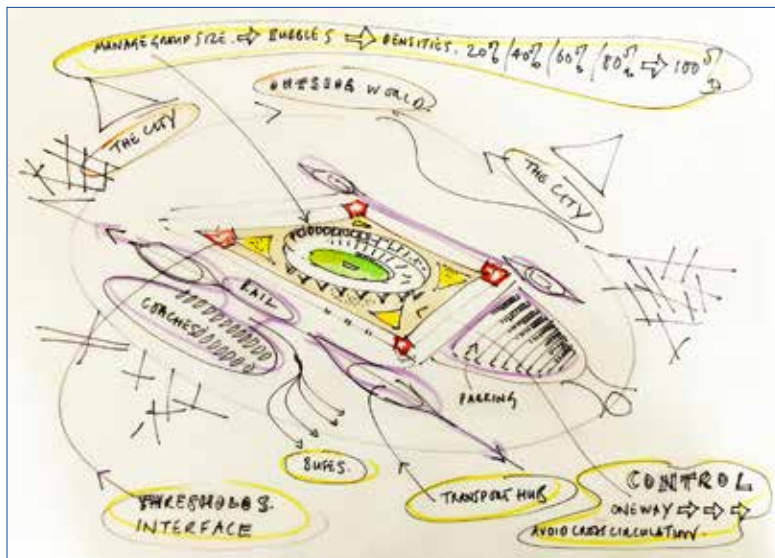 MANAGE GROUP SIZE. ⇨ BUBBLES ⇨ DENSITIES. 20% / 40% / 60% / 80% ⇨ 100%
WORLD.
THE CITY
THE CITY
RAIL
COACHES
PARKING
BUSES.
TRANSPORT HUB
THRESHOLDS.
INTERFACE
CONTROL
ONE WAY ⇨ ⇨ ⇨
AVOID CROSS CIRCULATION.